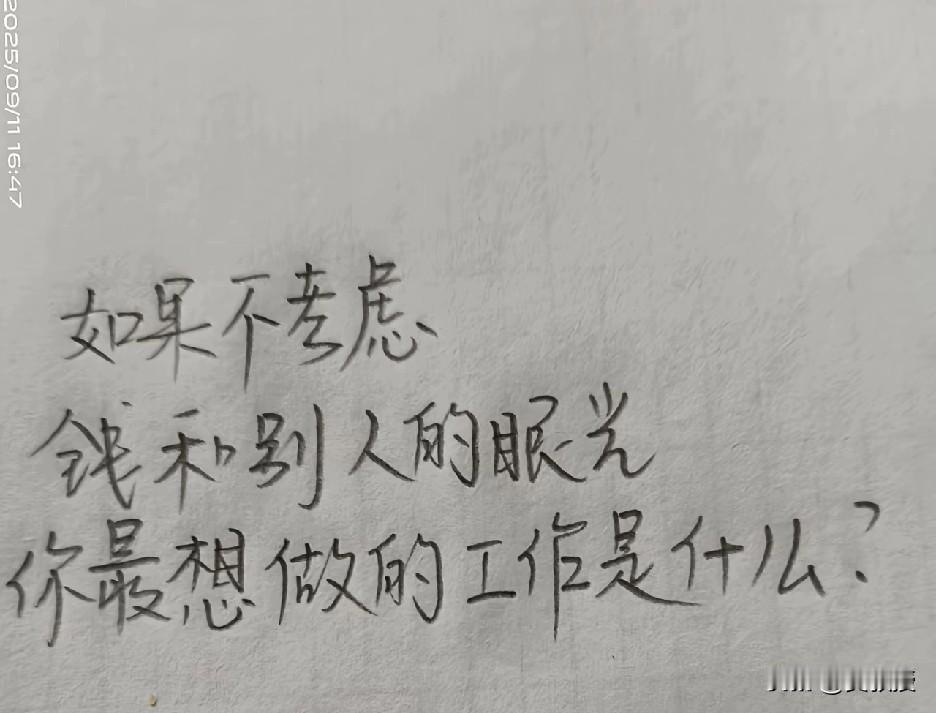 2025/09/11 16:47
如果不考虑
钱和别人的眼光
你最想做的工作是什么?